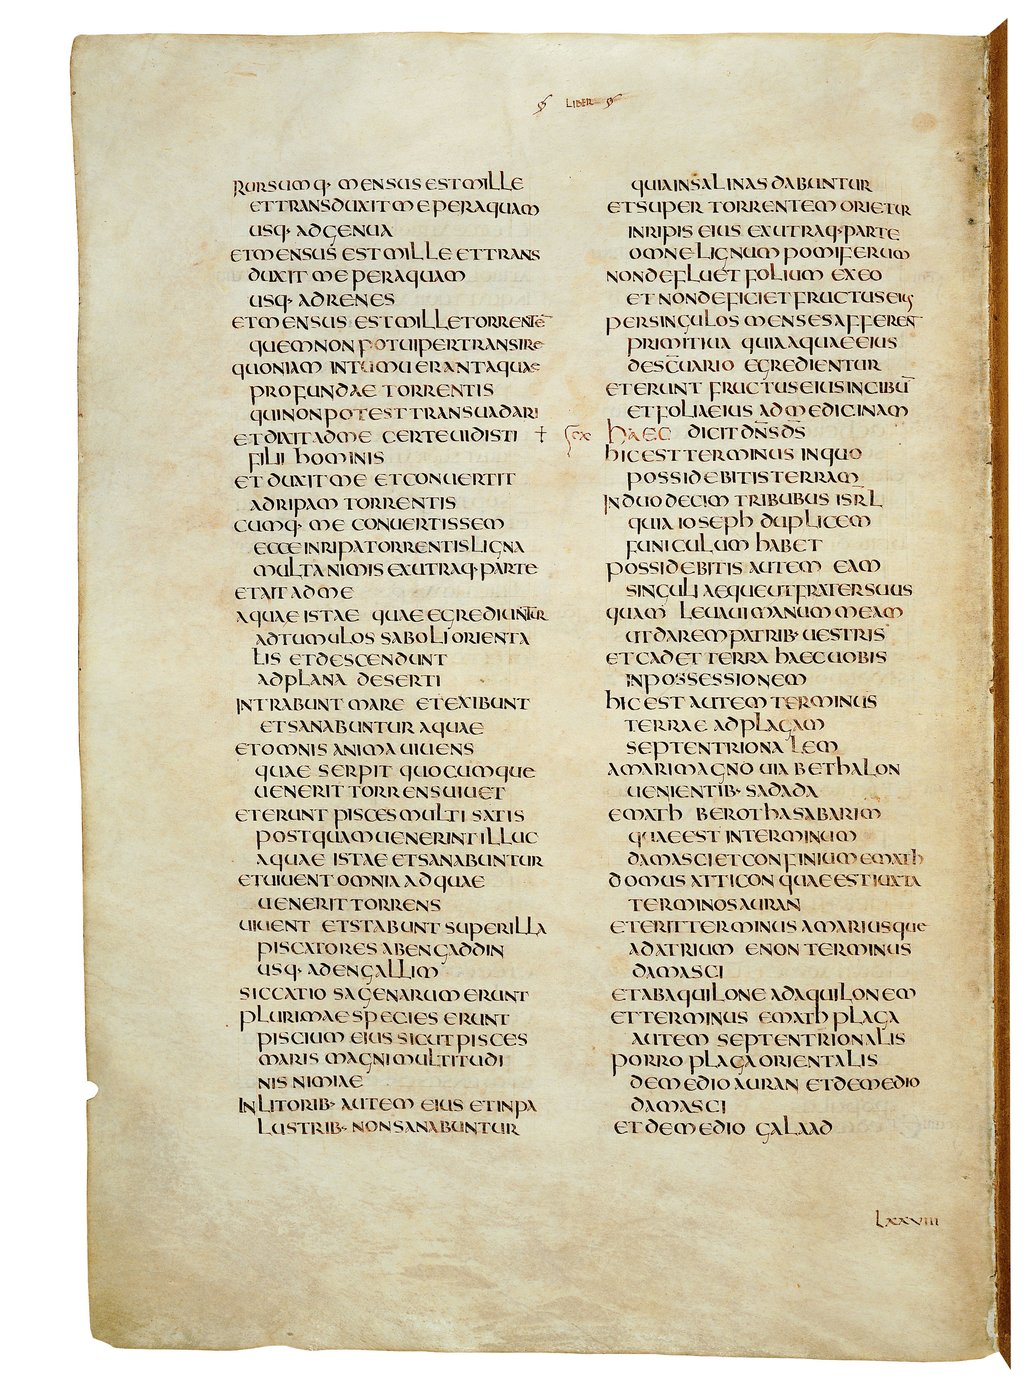 LIBER
RURSUMQ· MENSUS EST MILLE
ET TRANSDUXIT ME PER AQUAM
USQ· AD GENUA
ET MENSUS EST MILLE ET TRANS
DUXIT ME PER AQUAM
USQ· AD RENES
ET MENSUS EST MILLE TORRENTE̅
QUEM NON POTUI PERTRANSIRE
QUONIAM INTUMUERANT AQUAE
PROFUNDAE TORRENTIS
QUI NON POTEST TRANSUADARI
ET DIXIT AD ME CERTE UIDISTI
FILI HOMINIS
ET DUXIT ME ET CONUERTIT
AD RIPAM TORRENTIS
CUMQ· ME CONUERTISSEM
ECCE IN RIPA TORRENTIS LIGNA
MULTA NIMIS EX UTRAQ· PARTE
ET AIT AD ME
AQUAE ISTAE QUAE EGREDIUNTUR
AD TUMULOS SABOLI ORIENTA
LIS ET DESCENDUNT
AD PLANA DESERTI
INTRABUNT MARE ET EXIBUNT
ET SANABUNTUR AQUAE
ET OMNIS ANIMA UIUENS
QUAE SERPIT QUOCUMQUE
UENERIT TORRENS UIUET
ET ERUNT PISCES MULTI SATIS
POSTQUAM UENERINT ILLUC
AQUAE ISTAE ET SANABUNTUR
ET UIUENT OMNIA AD QUAE
UENERIT TORRENS
UIUENT ET STABUNT SUPER ILLA
PISCATORES AB ENGADDIN
USQ· AD ENGALLIM
SICCATIO SAGENARUM ERUNT
PLURIMAE SPECIES ERUNT
PISCIUM EIUS SICUT PISCES
MARIS MAGNI MULTITUDI
NIS NIMIAE
IN LITORIB· AUTEM EIUS ET IN PA
LUSTRIB· NON SANABUNTUR
QUIA IN SALINAS DABUNTUR
ET SUPER TORRENTEM ORIETUR
IN RIPIS EIUS EX UTRAQ· PARTE
OMNE LIGNUM POMIFERUM
NON DEFLUET FOLIUM EX EO
ET NON DEFICIET FRUCTUS EIUS
PER SINGULOS MENSES AFFERENT
PRIMITIUA QUIA AQUAE EIUS
DE SC̅UARIO EGREDIENTUR
ET ERUNT FRUCTUS EIUS IN CIBU̅
ET FOLIA EIUS AD MEDICINAM
† HAEC DICIT DN̅S DS̅
HIC EST TERMINUS IN QUO
POSSIDEBITIS TERRAM
IN DUODECIM TRIBUBUS ISRL̅
QUIA IOSEPH DUPLICEM
FUNICULUM HABET
POSSIDEBITIS AUTEM EAM
SINGULI AEQUE UT FRATER SUUS
QUAM LEUAUI MANUM MEAM
UT DAREM PATRIB· UESTRIS
ET CADET TERRA HAEC UOBIS
IN POSSESSIONEM
HIC EST AUTEM TERMINUS
TERRAE AD PLAGAM
SEPTENTRIONALEM
A MARI MAGNO UIA BETHALON
UENIENTIB· SADADA
EMATH BEROTHA SABARIM
QUAE EST INTER MINUM
DAMASCI ET CONFINIUM EMATH
DOMUS ATTICON QUAE EST IUXTA
TERMINOS AURAN
ET ERIT TERMINUS A MARI USQUE
AD ATRIUM ENON TERMINUS
DAMASCI
ET AB AQUILONE AD AQUILONEM
ET TERMINUS EMATH PLAGA
AUTEM SEPTENTRIONALIS
PORRO PLAGA ORIENTALIS
DE MEDIO AURAN ET DE MEDIO
DAMASCI
ET DE MEDIO GALAAD
LXXVIII